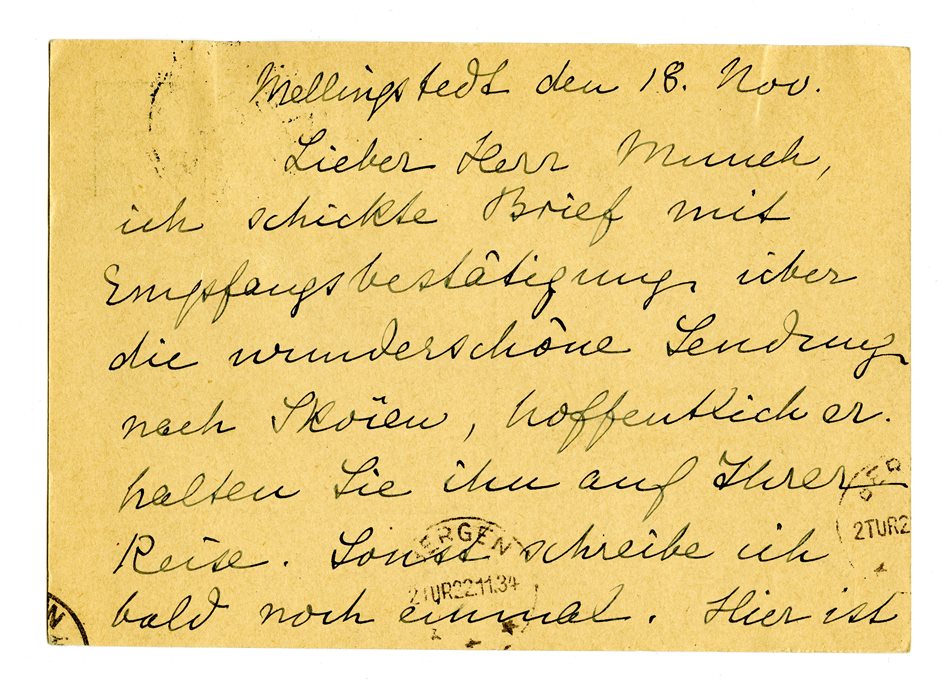 Mellingstedt den 18. Nov.
Lieber Herr Munch,
ich schickte Brief mit
Empfangsbestätigung über
die wunderschöne Sendung
nach Skoïen, hoffentlich er-
halten Sie ihn auf Ihrer
Reise. Sonst schreibe ich
bald noch einmal. Hier ist
BERGEN
2TUR22.11.34
2TUR2
N